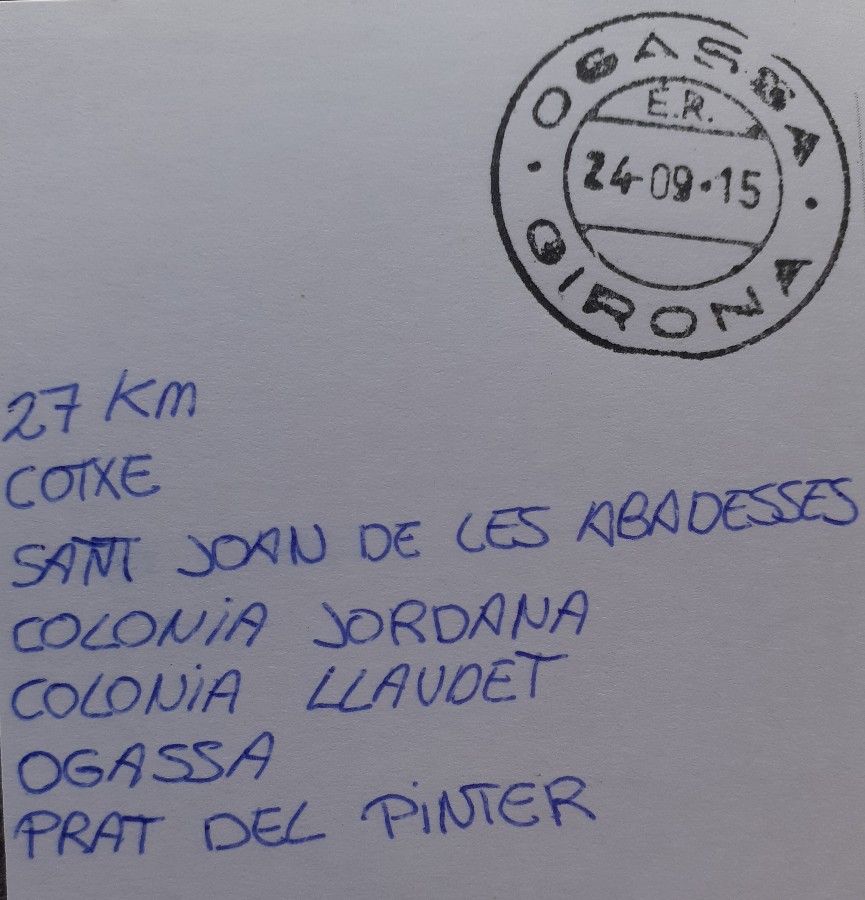 OGASSA
E.R.
24-09-15
GIRONA
27 Km
COTXE
SANT JOAN DE LES ABADESSES
COLONiA JORDANA
COLONiA LLAUDET
OGASSA
PRAT DEL PiNTER